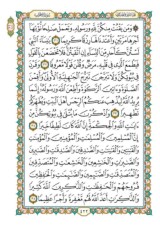 وَمَن يَقْنُتْ مِنكُنَّ لِلَّهِ وَرَسُولِهِۦ وَتَعْمَلْ صَٰلِحًا نُّؤْتِهَآ
أَجْرَهَا مَرَّتَيْنِ وَأَعْتَدْنَا لَهَا رِزْقًا كَرِيمًا ٣١ يَٰنِسَآءَ ٱلنَّبِىِّ
لَسْتُنَّ كَأَحَدٍ مِّنَ ٱلنِّسَآءِ إِنِ ٱتَّقَيْتُنَّ فَلَا تَخْضَعْنَ بِٱلْقَوْلِ
فَيَطْمَعَ ٱلَّذِى فِى قَلْبِهِۦ مَرَضٌ وَقُلْنَ قَوْلًا مَّعْرُوفًا ٣٢ وَقَرْنَ
فِى بُيُوتِكُنَّ وَلَا تَبَرَّجْنَ تَبَرُّجَ ٱلْجَٰهِلِيَّةِ ٱلْأُولَىٰ وَأَقِمْنَ
ٱلصَّلَوٰةَ وَءَاتِينَ ٱلزَّكَوٰةَ وَأَطِعْنَ ٱللَّهَ وَرَسُولَهُۥٓ إِنَّمَا
يُرِيدُ ٱللَّهُ لِيُذْهِبَ عَنكُمُ ٱلرِّجْسَ أَهْلَ ٱلْبَيْتِ وَيُطَهِّرَكُمْ
تَطْهِيرًا ٣٣ وَٱذْكُرْنَ مَا يُتْلَىٰ فِى بُيُوتِكُنَّ مِنْ
ءَايَٰتِ ٱللَّهِ وَٱلْحِكْمَةِ إِنَّ ٱللَّهَ كَانَ لَطِيفًا خَبِيرًا ٣٤
إِنَّ ٱلْمُسْلِمِينَ وَٱلْمُسْلِمَٰتِ وَٱلْمُؤْمِنِينَ وَٱلْمُؤْمِنَٰتِ
وَٱلْقَٰنِتِينَ وَٱلْقَٰنِتَٰتِ وَٱلصَّٰدِقِينَ وَٱلصَّٰدِقَٰتِ
وَٱلصَّٰبِرِينَ وَٱلصَّٰبِرَٰتِ وَٱلْخَٰشِعِينَ وَٱلْخَٰشِعَٰتِ
وَٱلْمُتَصَدِّقِينَ وَٱلْمُتَصَدِّقَٰتِ وَٱلصَّٰٓئِمِينَ وَٱلصَّٰٓئِمَٰتِ وَٱلْحَٰفِظِينَ
فُرُوجَهُمْ وَٱلْحَٰفِظَٰتِ وَٱلذَّٰكِرِينَ ٱللَّهَ كَثِيرًا
وَٱلذَّٰكِرَٰتِ أَعَدَّ ٱللَّهُ لَهُم مَّغْفِرَةً وَأَجْرًا عَظِيمًا ٣٥
٤٢٢